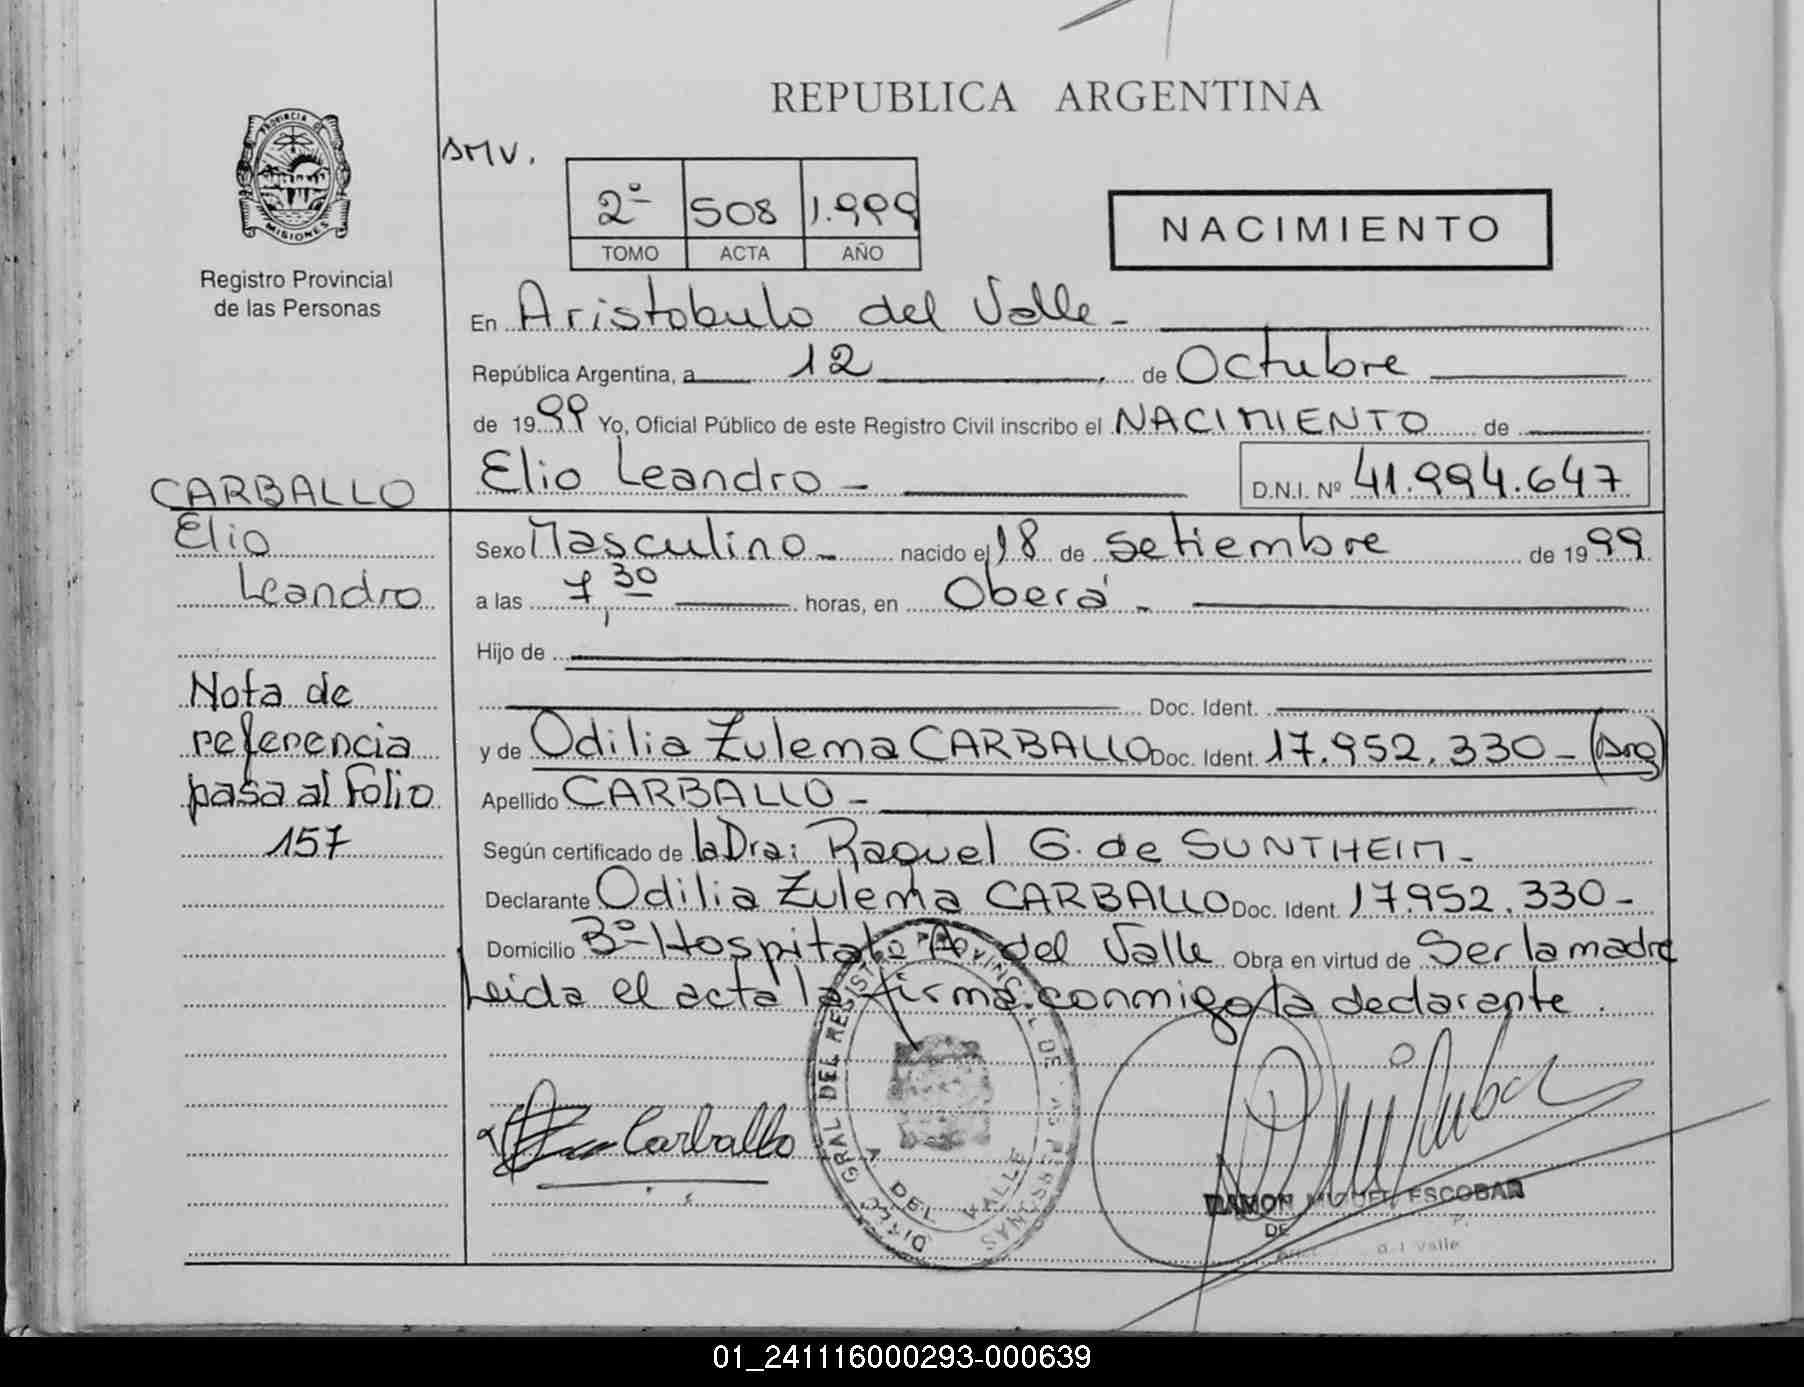 REPUBLICA ARGENTINA
PROVINCIA DE
MISIONES
Registro Provincial
de las Personas
2º 508 1.999
TOMO ACTA AÑO
NACIMIENTO
En Aristobulo del Valle -
República Argentina, a 12 de Octubre
de 1999 Yo, Oficial Público de este Registro Civil inscribo el NACIMIENTO de
Elio Leandro - D.N.I. Nº 41.994.647
CARBALLO
Elio
Leandro
Nota de
referencia
pasa al Folio
157
Sexo Masculino - nacido el 18 de Setiembre de 1999
a las 7,30 horas, en Oberá -
Hijo de
Doc. Ident.
y de Odilia Zulema CARBALLO Doc. Ident. 17.952.330 - (Arg)
Apellido CARBALLO -
Según certificado de la Dra: Raquel G. de SUNTHEIM -
Declarante Odilia Zulema CARBALLO Doc. Ident. 17.952.330 -
Domicilio Bº Hospital A del Valle Obra en virtud de Ser la madre
Leida el acta la firma conmigo la declarante.
Carballo
DIREC. GRAL DEL REGISTRO PROVINCIAL DE LAS PERSONAS
A DEL VALLE
RAMON MIGUEL ESCOBAR
01_241116000293-000639